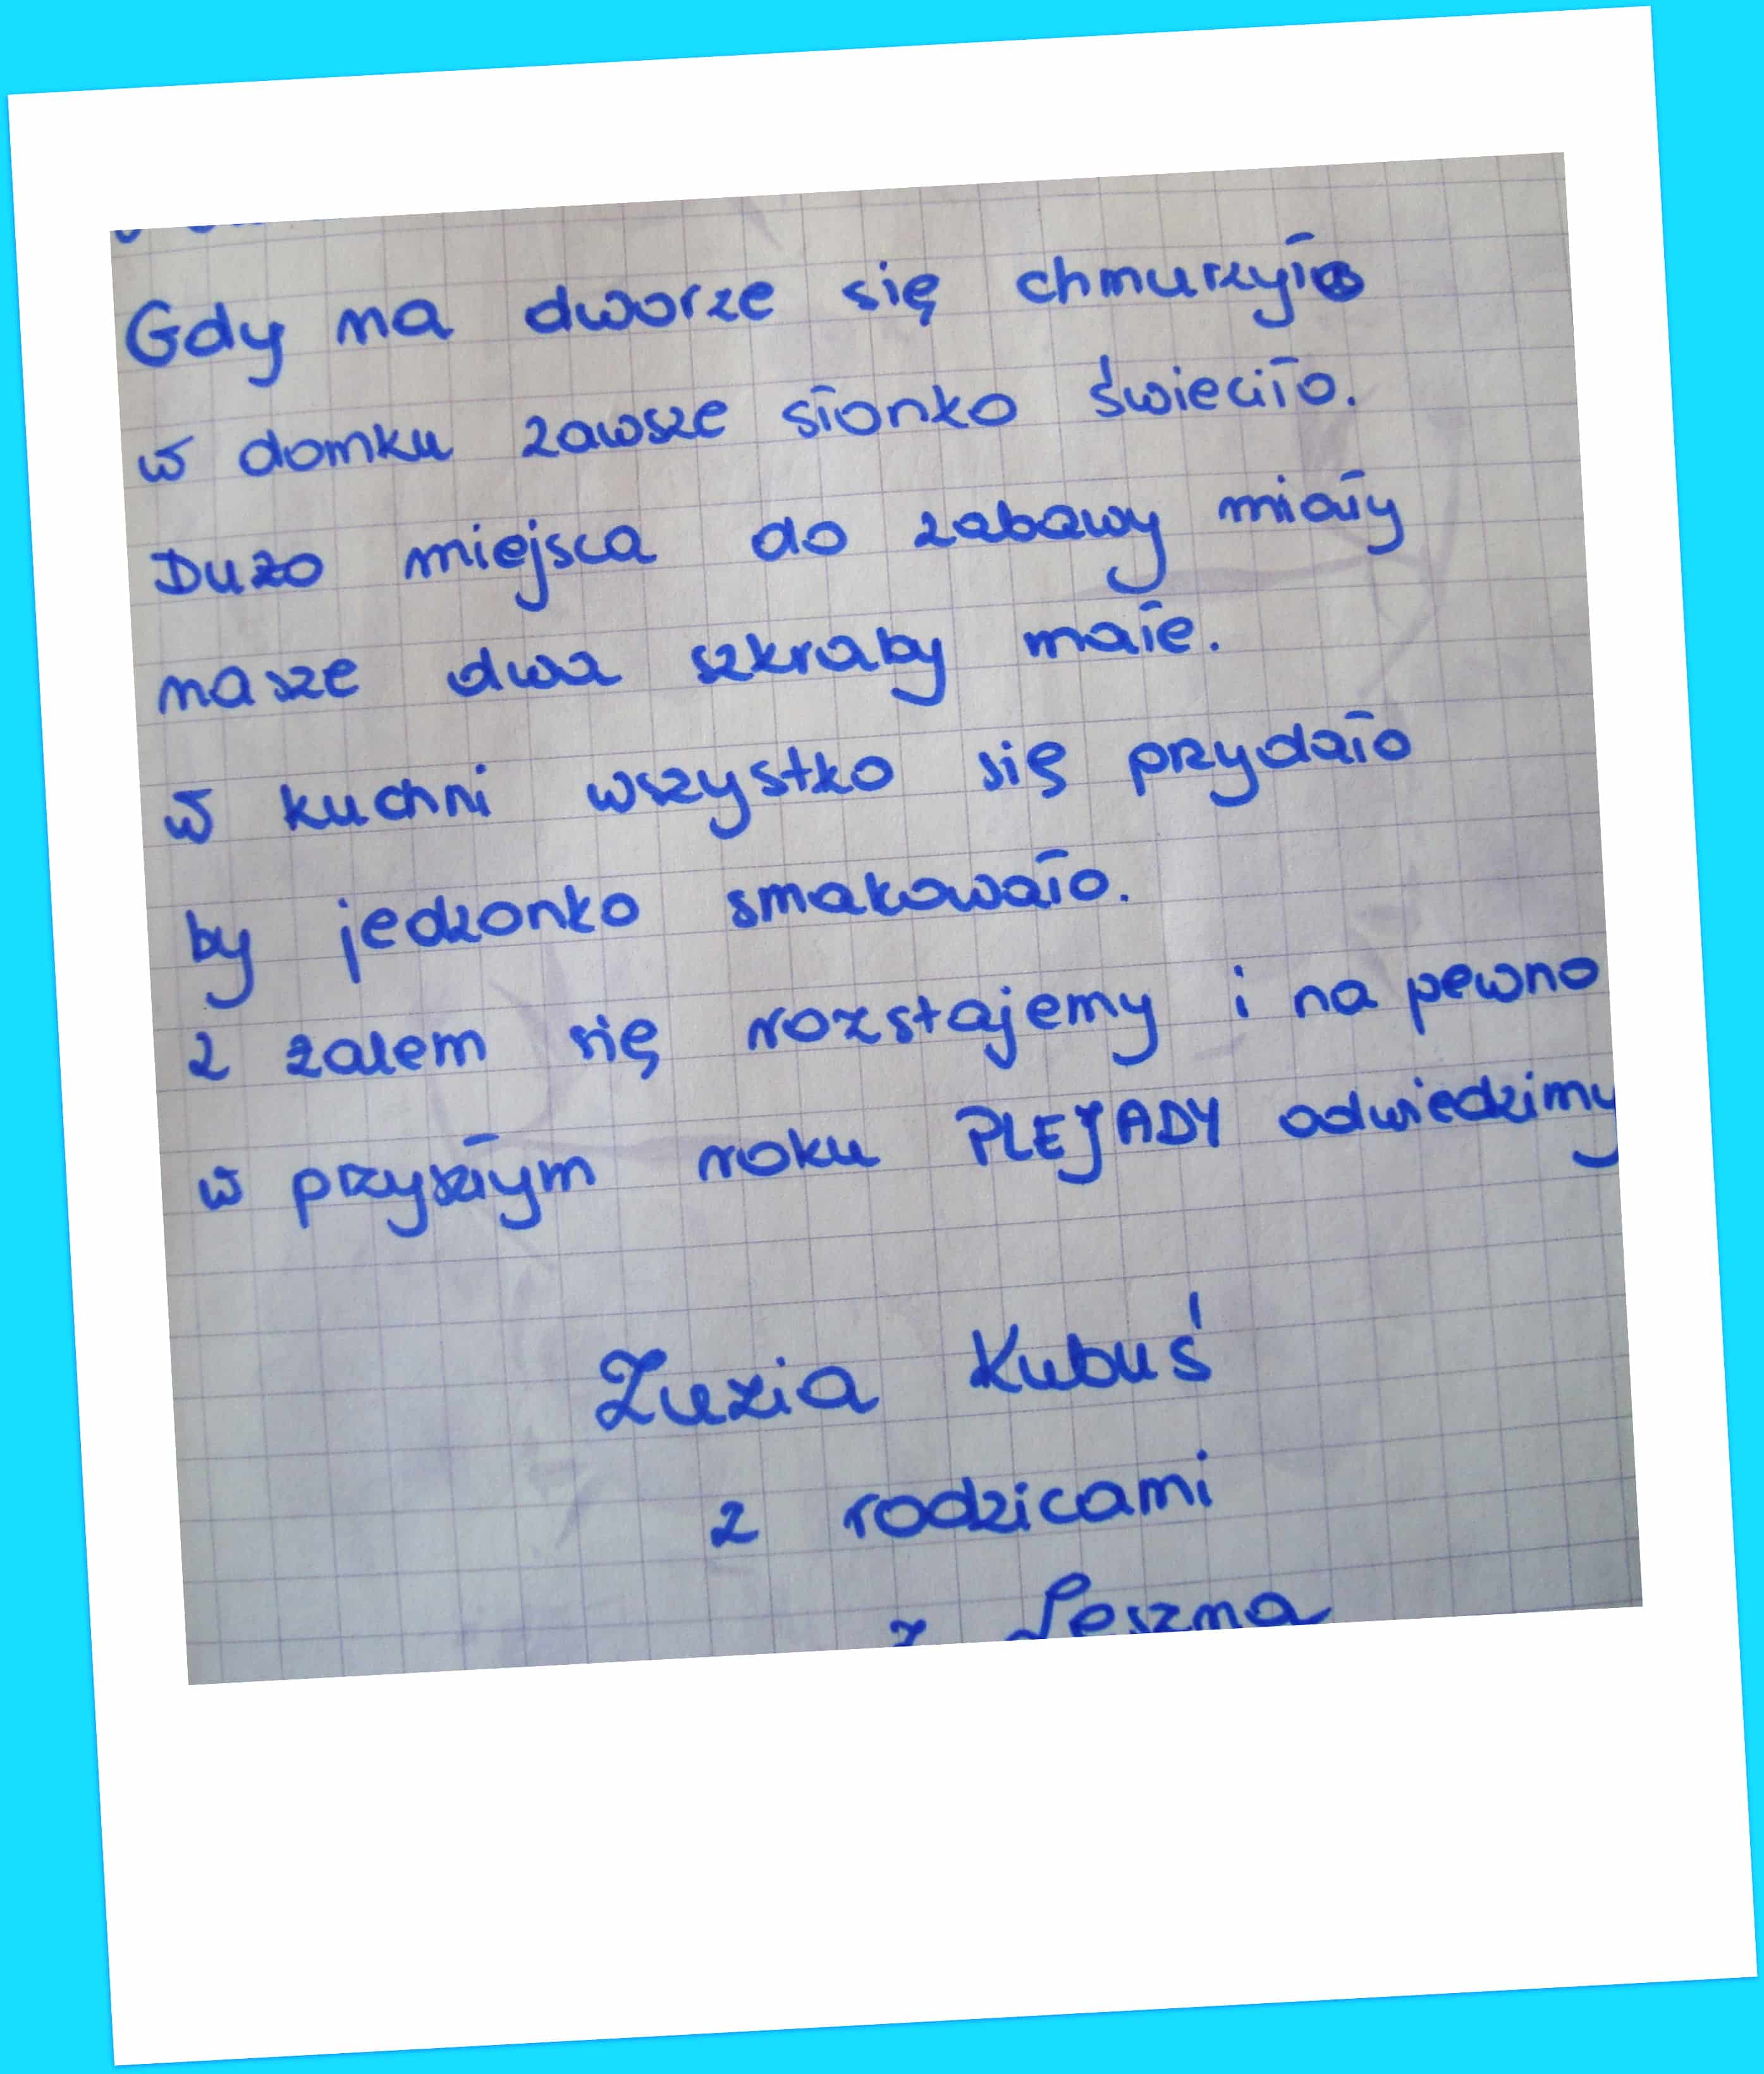 Gdy na dworze się chmurzyło
w domku zawsze słonko świeciło.
Dużo miejsca do zabawy miały
nasze dwa szkraby małe.
W kuchni wszystko się przydało
by jedzonko smakowało.
Z żalem się rozstajemy i na pewno
w przyszłym roku PLEJADY odwiedzimy
Zuzia Kubuś
z rodzicami
z Leszna